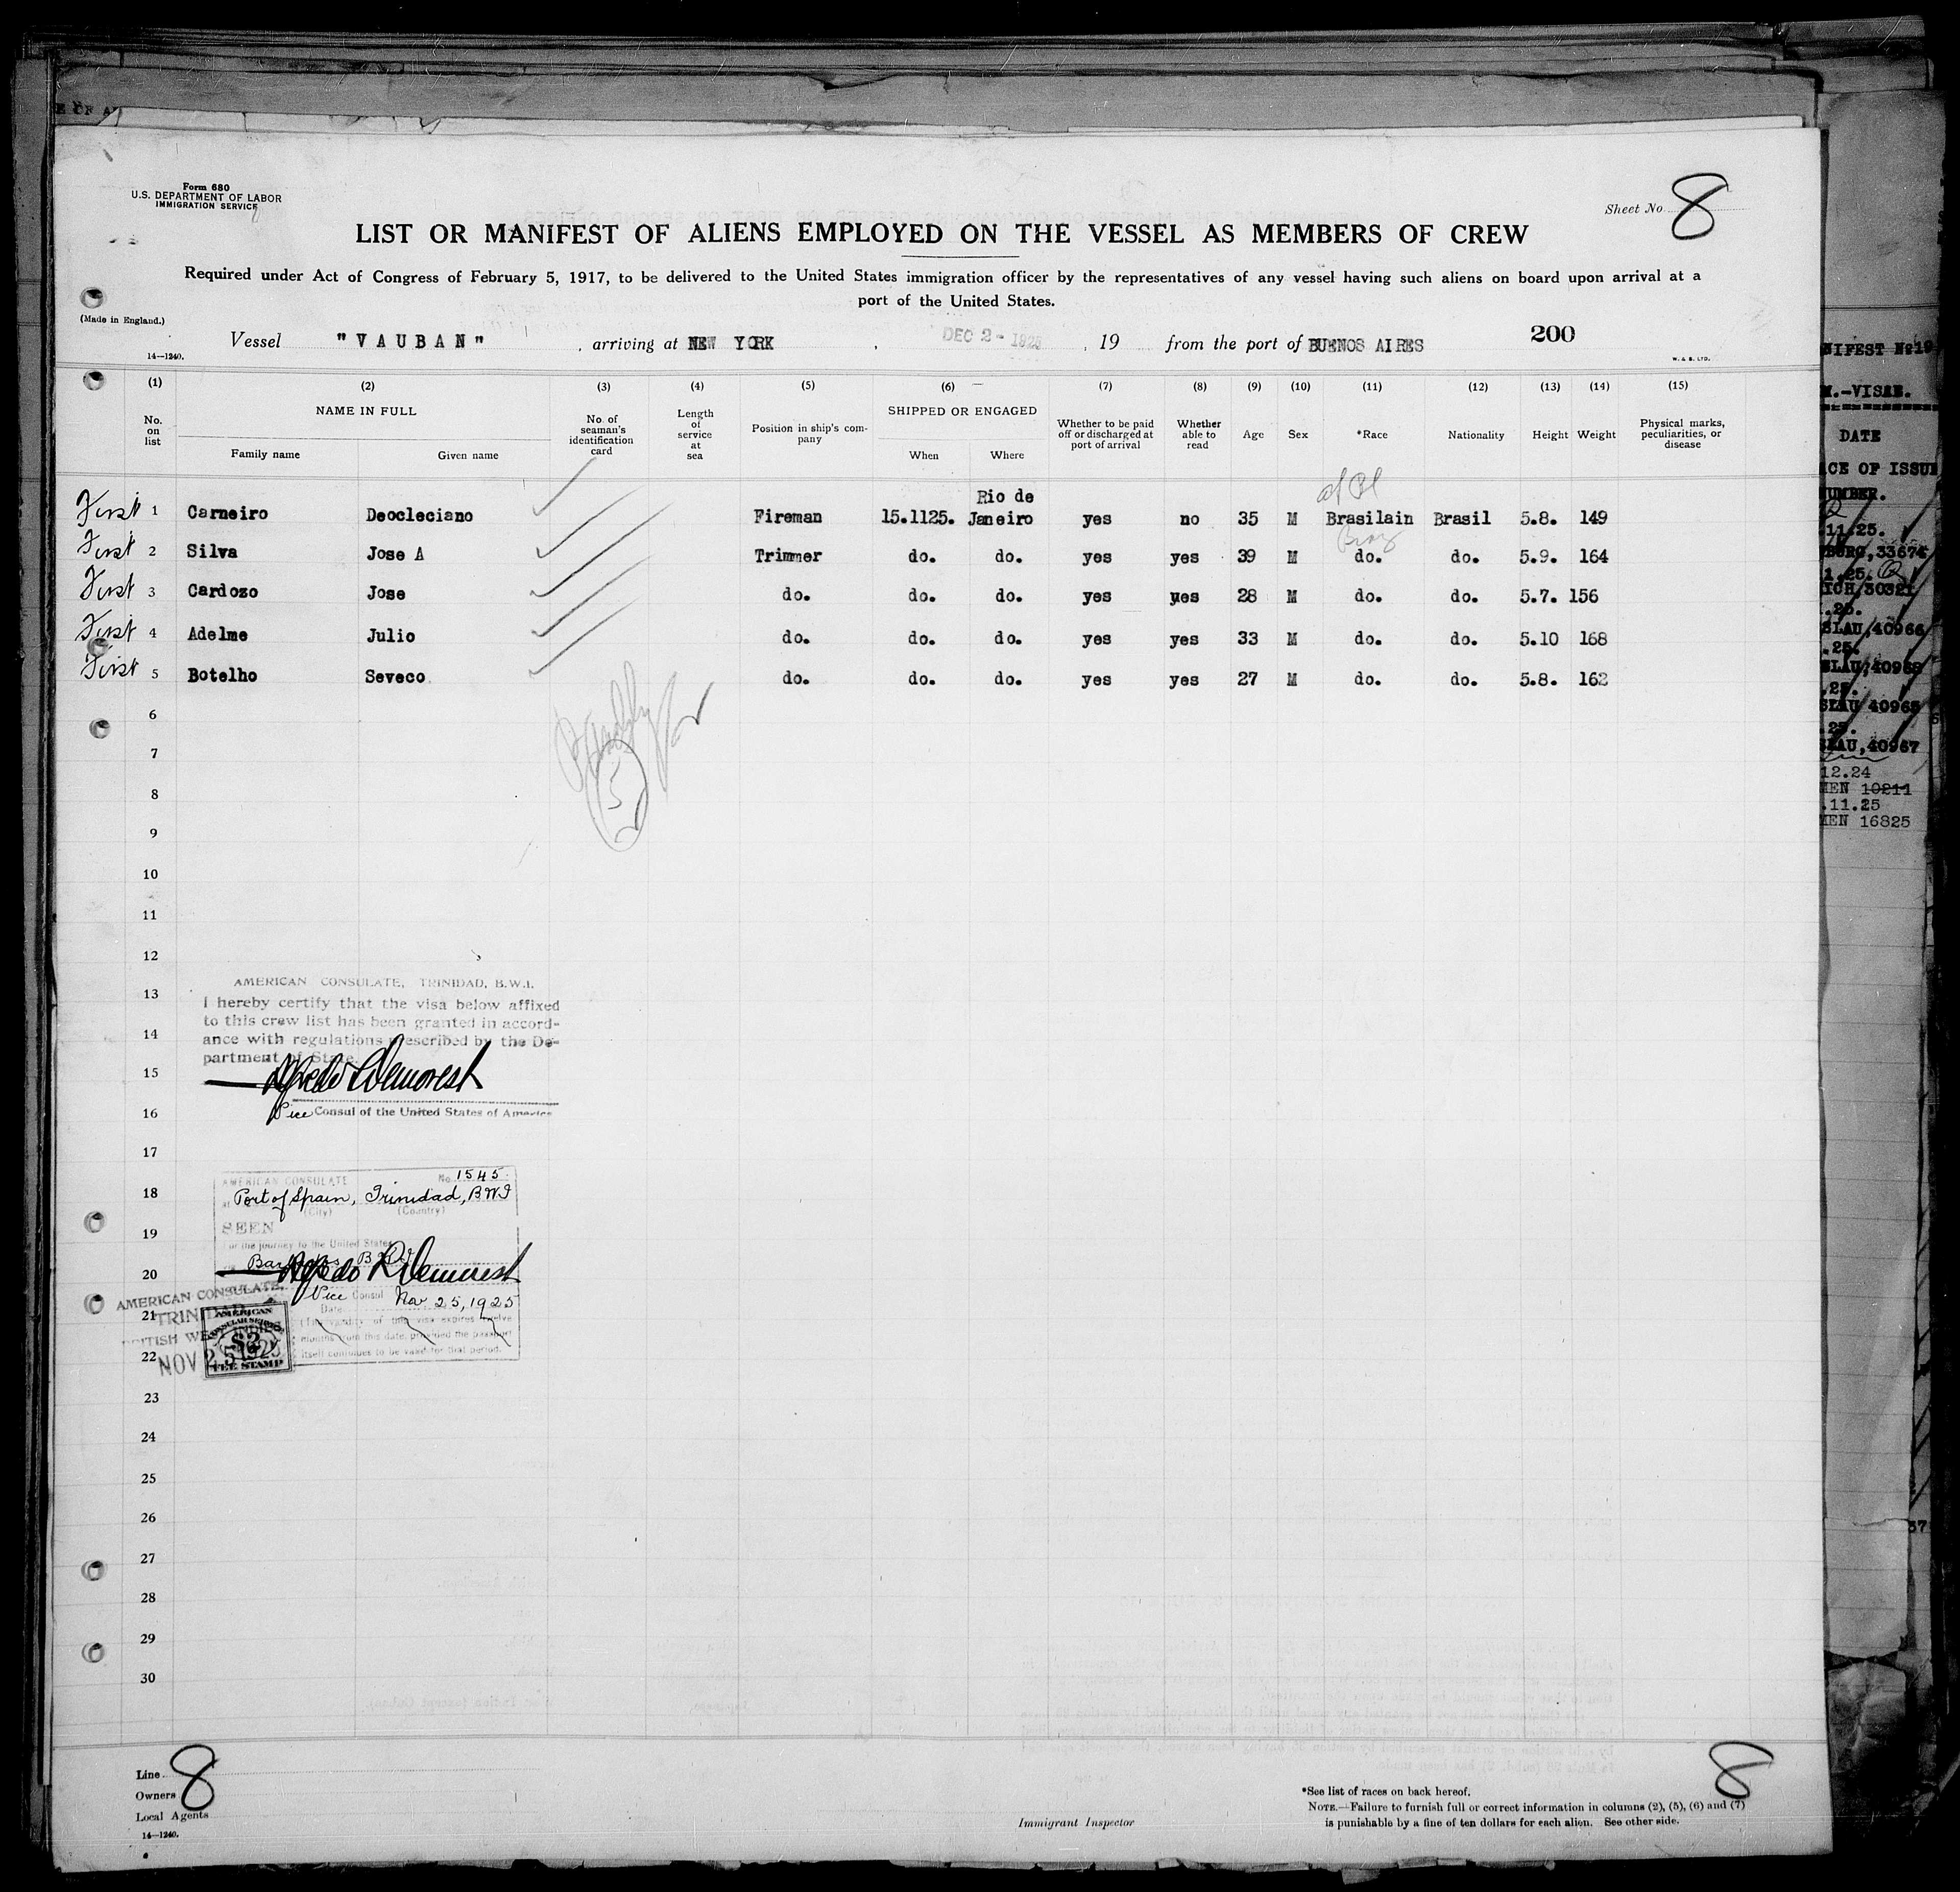 Form 680
U.S. DEPARTMENT OF LABOR
IMMIGRATION SERVICE
Sheet No. 8
LIST OR MANIFEST OF ALIENS EMPLOYED ON THE VESSEL AS MEMBERS OF CREW
Required under Act of Congress of February 5, 1917, to be delivered to the United States immigration officer by the representatives of any vessel having such aliens on board upon arrival at a
port of the United States.
(Made in England.)
14—1240.
Vessel "VAUBAN", arriving at NEW YORK, DEC 2 - 1925, 19 from the port of BUENOS AIRES 200
W. & S. LTD.
(1) (2) (3) (4) (5) (6) (7) (8) (9) (10) (11) (12) (13) (14) (15)
No. on list
NAME IN FULL
Family name Given name
No. of seaman's identification card
Length of service at sea
Position in ship's company
SHIPPED OR ENGAGED
When Where
Whether to be paid off or discharged at port of arrival
Whether able to read
Age Sex *Race Nationality Height Weight
Physical marks, peculiarities, or disease
First 1 Carneiro Deocleciano Fireman 15.1125. Rio de Janeiro yes no 35 M Brasilain Brasil 5.8. 149
First 2 Silva Jose A Trimmer do. do. yes yes 39 M do. do. 5.9. 164
First 3 Cardozo Jose do. do. do. yes yes 28 M do. do. 5.7. 156
First 4 Adelme Julio do. do. do. yes yes 33 M do. do. 5.10 168
First 5 Botelho Seveco do. do. do. yes yes 27 M do. do. 5.8. 162
6
7
5
8
9
10
11
12
AMERICAN CONSULATE, TRINIDAD, B.W.I.
13
I hereby certify that the visa below affixed
to this crew list has been granted in accord-
14
ance with regulations prescribed by the De-
partment of State.
15
Alfredo L Demorest
16
Vice Consul of the United States of America
17
AMERICAN CONSULATE No. 1545
18
at Port of Spain, Trinidad, B.W.I
(City) (Country)
19
SEEN
For the journey to the United States
20
Alfredo L Demorest
Vice Consul
AMERICAN CONSULATE,
Date Nov 25, 1925
21
TRINIDAD
BRITISH WEST INDIES
NOV 25 1925
AMERICAN CONSULAR SERVICE
$2
FEE STAMP
(The validity of this visa expires twelve
months from this date, provided the passport
itself continues to be valid for that period.
22
23
24
25
26
27
28
29
30
Line
Owners
Local Agents
14—1240.
8
Immigrant Inspector
8
*See list of races on back hereof.
NOTE.—Failure to furnish full or correct information in columns (2), (5), (6) and (7)
is punishable by a fine of ten dollars for each alien. See other side.
DATE
12.24
10211
.11.25
16825